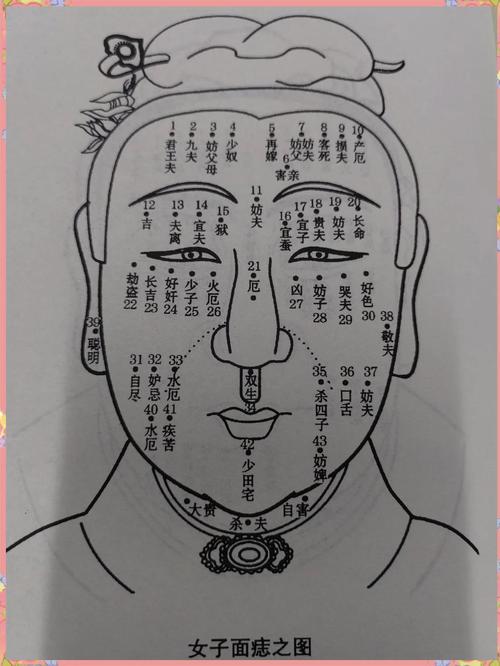 1 君王夫
2 九夫
3 妨父母
4 少奴
5 再嫁
6 害亲
7 妨夫 妨父
8 客死
9 损夫
10 产厄
11 妨夫
12 吉
13 夫离
14 宜夫
15 狱
16 宜蚕
17 宜子
18 贵夫
19 妨夫
20 长命
21 厄
劫盗 22
长吉 23
好奸 24
少子 25
火厄 26
凶 27
妨子 28
哭夫 29
好色 30
31 自尽
32 妒忌
33 水厄
双生 34
35 杀四子
36 口舌
37 妨夫
38 敬夫
39 聪明
40 水厄
41 疾苦
42 少田宅
43 妨婢
大贵
杀夫
自害
女子面痣之图